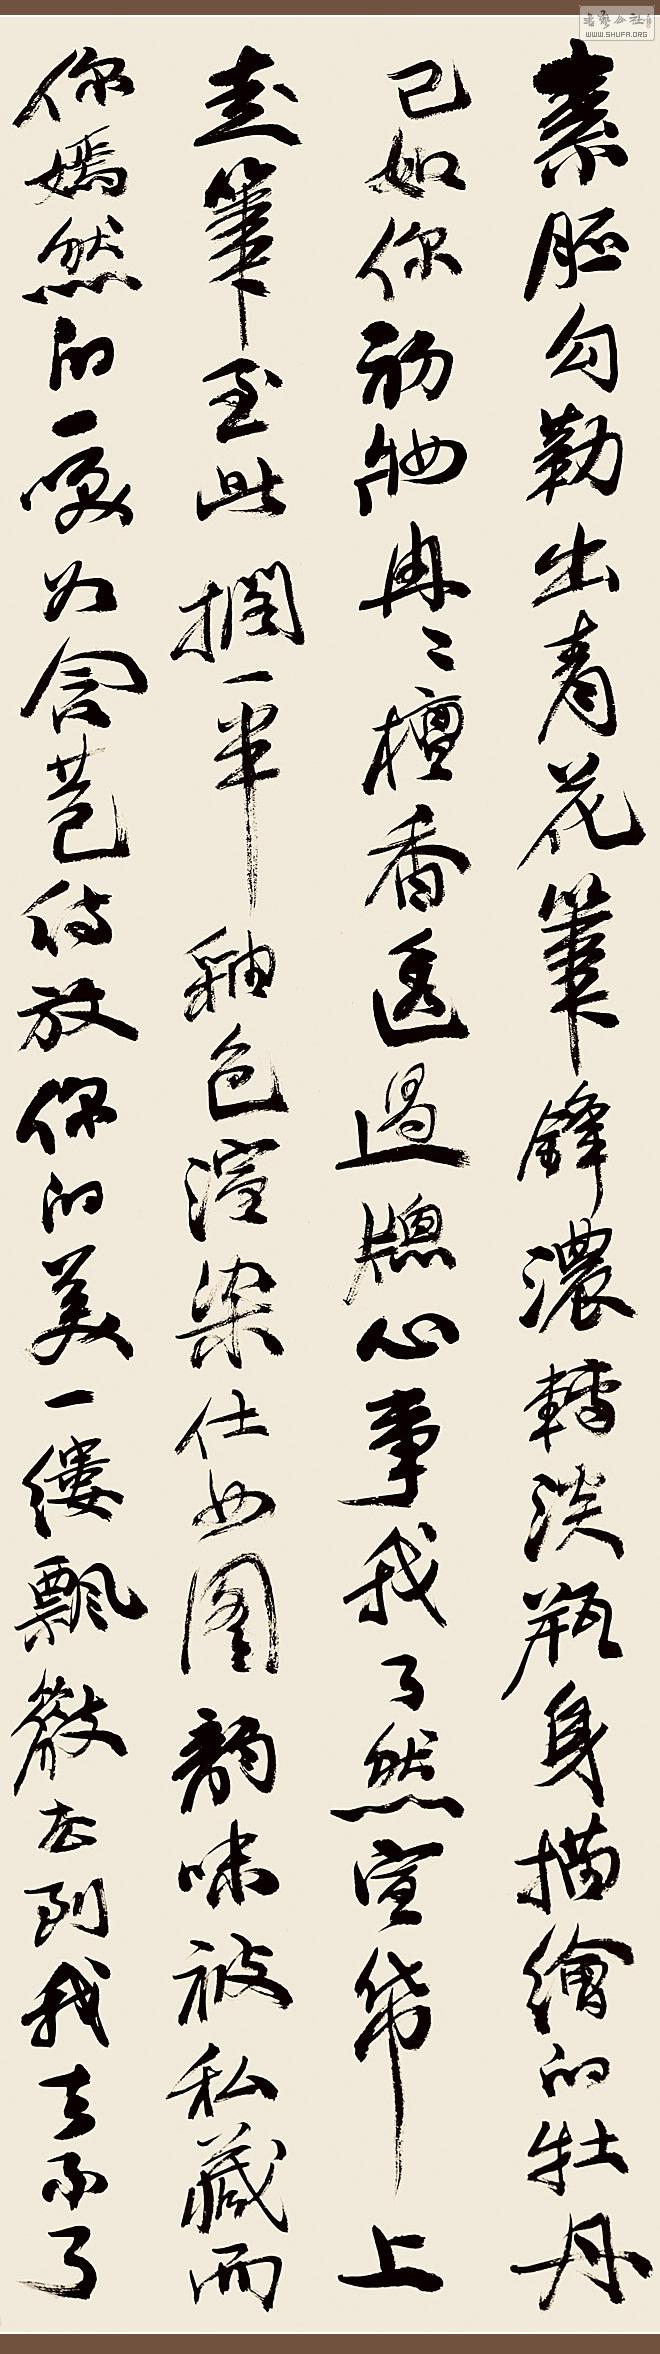 素胚勾勒出青花筆鋒濃轉淡瓶身描繪的牡丹
已如你初妝冉々檀香透過牕心事我了然宣帋上
走筆至此擱一半釉色渲染仕女圖韻味被私藏而
你嫣然的一咲如含苞待放你的美一縷飄散去到我去不了
書藝公社
WWW.SHUFA.ORG